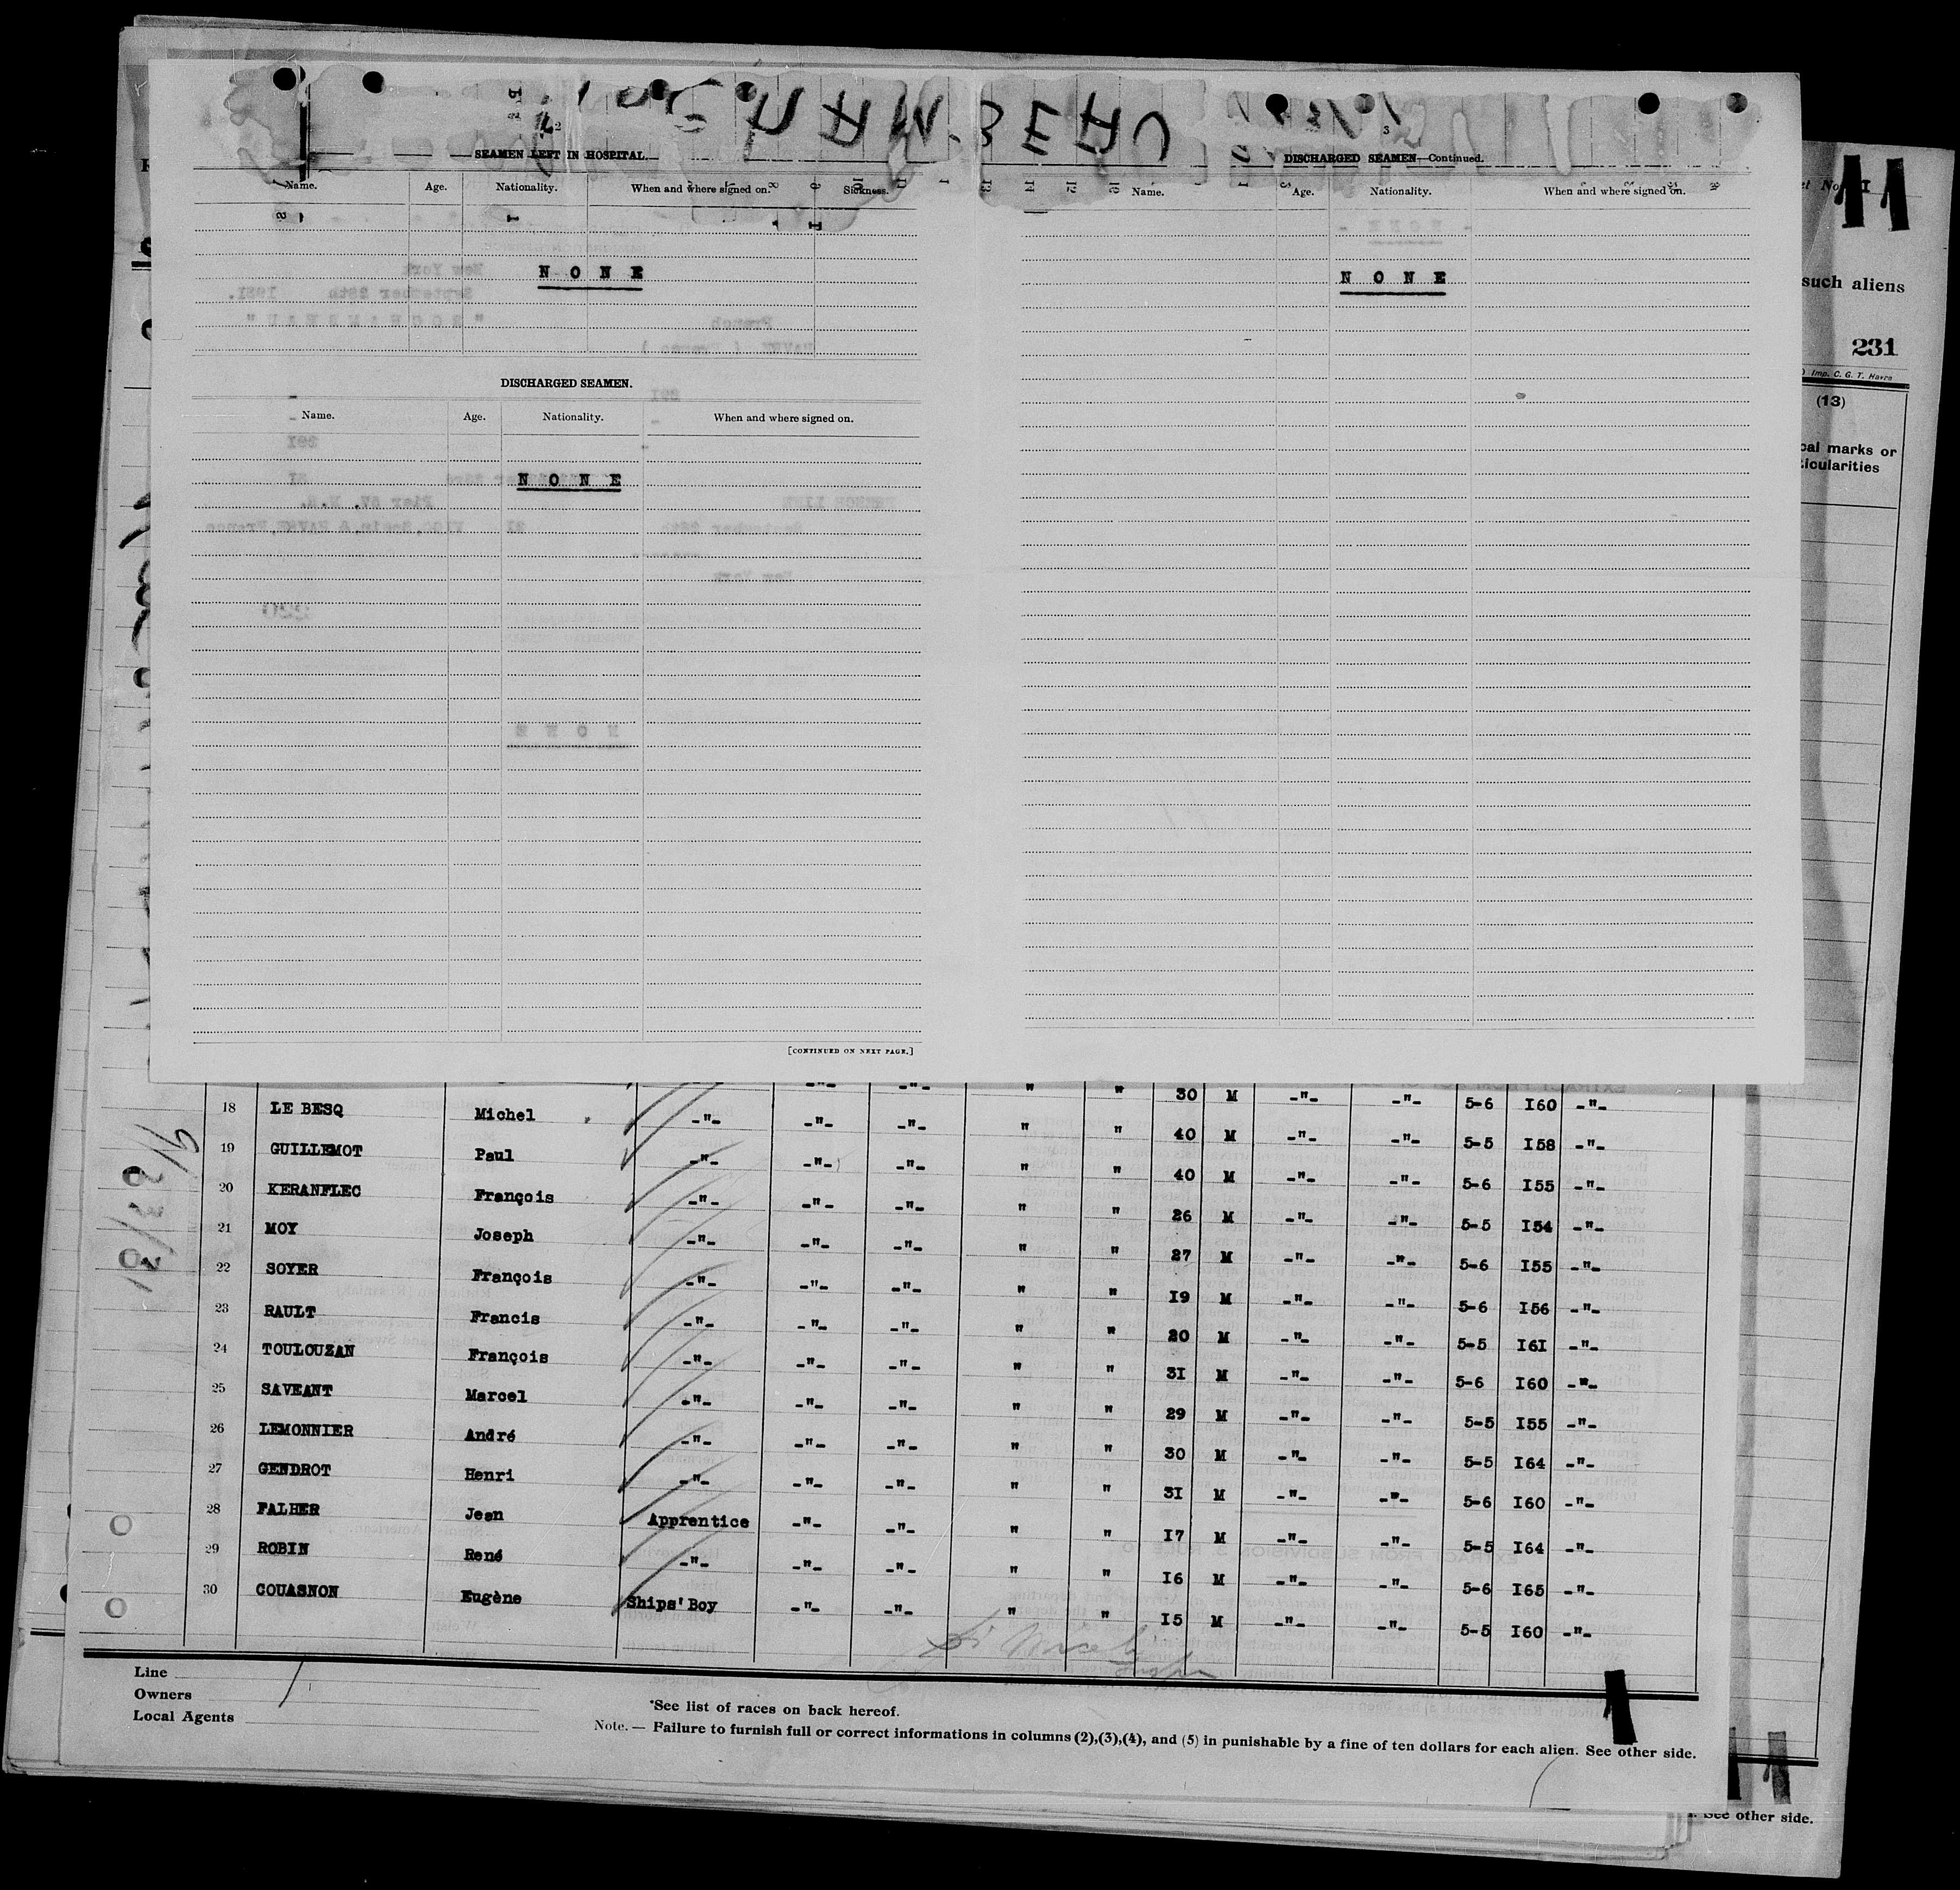 2
SEAMEN LEFT IN HOSPITAL.
Name. Age. Nationality. When and where signed on. Sickness.
N O N E
DISCHARGED SEAMEN.
Name. Age. Nationality. When and where signed on.
N O N E
[CONTINUED ON NEXT PAGE.]
3
DISCHARGED SEAMEN—Continued.
Name. Age. Nationality. When and where signed on.
N O N E
11
such aliens
231
Imp. C. G. T. Havre
(13)
cal marks or
ticularities
30 M -"- -"- 5-6 I60 -"-
18 LE BESQ Michel -"- -"- -"- " " 40 M -"- -"- 5-5 I58 -"-
19 GUILLEMOT Paul -"- -"- -"- " " 40 M -"- -"- 5-6 I55 -"-
20 KERANFLEC François -"- -"- -"- " " 26 M -"- -"- 5-5 I54 -"-
21 MOY Joseph -"- -"- -"- " " 27 M -"- -"- 5-6 I55 -"-
22 SOYER François -"- -"- -"- " " I9 M -"- -"- 5-6 I56 -"-
23 RAULT Francis -"- -"- -"- " " 20 M -"- -"- 5-5 I6I -"-
24 TOULOUZAN François -"- -"- -"- " " 3I M -"- -"- 5-6 I60 -"-
25 SAVEANT Marcel -"- -"- -"- " " 29 M -"- -"- 5-5 I55 -"-
26 LEMONNIER André -"- -"- -"- " " 30 M -"- -"- 5-5 I64 -"-
27 GENDROT Henri -"- -"- -"- " " 3I M -"- -"- 5-6 I60 -"-
28 FALHER Jean Apprentice -"- -"- " " I7 M -"- -"- 5-5 I64 -"-
29 ROBIN René -"- -"- -"- " " I6 M -"- -"- 5-6 I65 -"-
30 COUASNON Eugène Ships' Boy -"- -"- " " I5 M -"- -"- 5-5 I60 -"-
Line
Owners
Local Agents
*See list of races on back hereof.
Note.— Failure to furnish full or correct informations in columns (2),(3),(4), and (5) in punishable by a fine of ten dollars for each alien. See other side.
See other side.